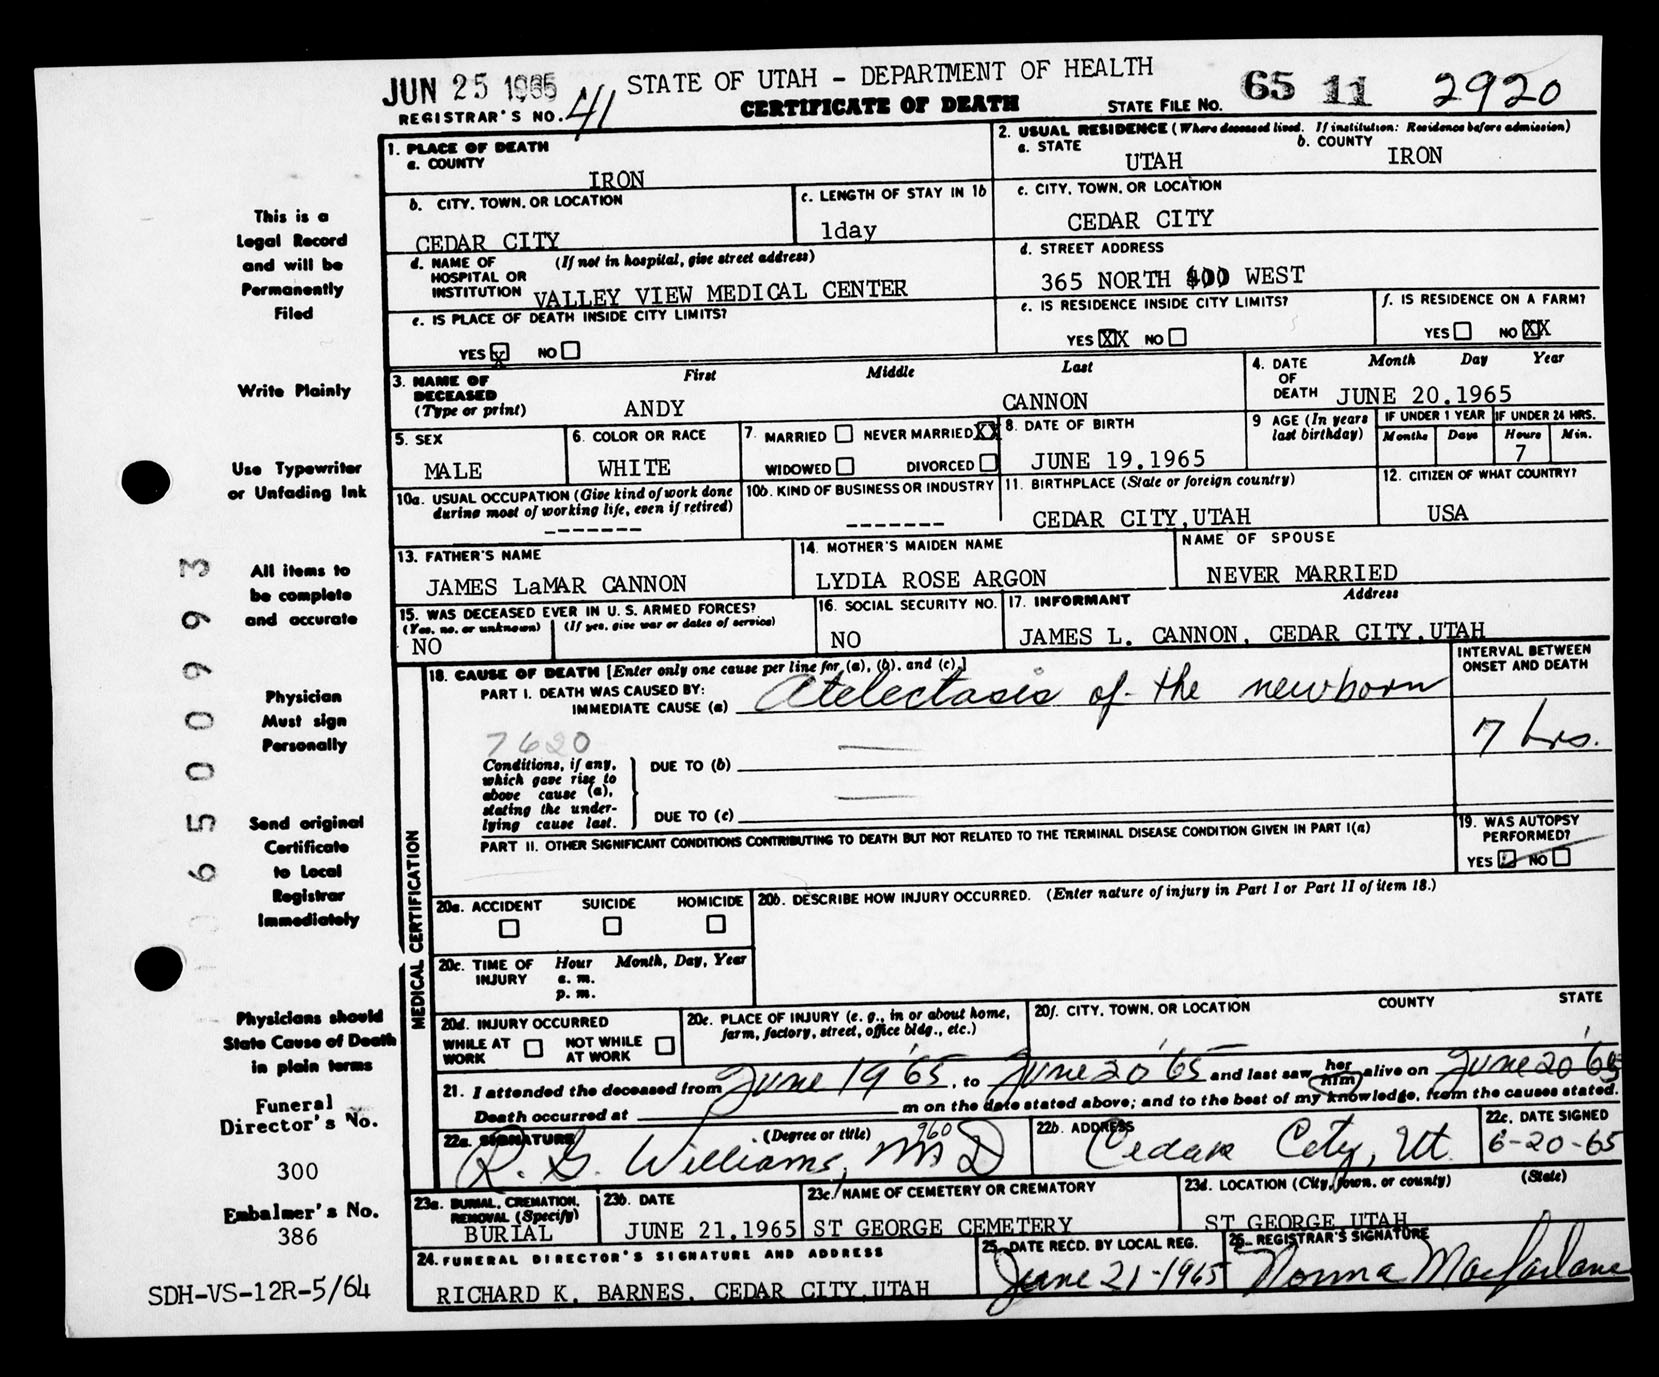 JUN 25 1965
STATE OF UTAH - DEPARTMENT OF HEALTH
CERTIFICATE OF DEATH
REGISTRAR'S NO. 41
STATE FILE NO. 65 11 2920
1. PLACE OF DEATH
a. COUNTY
IRON
2. USUAL RESIDENCE (Where deceased lived. If institution: Residence before admission)
a. STATE
UTAH
b. COUNTY
IRON
b. CITY, TOWN, OR LOCATION
CEDAR CITY
c. LENGTH OF STAY IN 1b
1day
c. CITY, TOWN, OR LOCATION
CEDAR CITY
d. NAME OF (If not in hospital, give street address)
HOSPITAL OR
INSTITUTION VALLEY VIEW MEDICAL CENTER
d. STREET ADDRESS
365 NORTH 400 WEST
e. IS PLACE OF DEATH INSIDE CITY LIMITS?
YES X NO
e. IS RESIDENCE INSIDE CITY LIMITS?
YES XX NO
f. IS RESIDENCE ON A FARM?
YES NO XX
3. NAME OF DECEASED (Type or print)
First Middle Last
ANDY CANNON
4. DATE OF DEATH Month Day Year
JUNE 20.1965
5. SEX
MALE
6. COLOR OR RACE
WHITE
7. MARRIED NEVER MARRIED XX
WIDOWED DIVORCED
8. DATE OF BIRTH
JUNE 19.1965
9 AGE (In years last birthday)
IF UNDER 1 YEAR IF UNDER 24 HRS.
Months Days Hours Min.
7
10a. USUAL OCCUPATION (Give kind of work done
during most of working life, even if retired)
-------
10b. KIND OF BUSINESS OR INDUSTRY
-------
11. BIRTHPLACE (State or foreign country)
CEDAR CITY,UTAH
12. CITIZEN OF WHAT COUNTRY?
USA
13. FATHER'S NAME
JAMES LaMAR CANNON
14. MOTHER'S MAIDEN NAME
LYDIA ROSE ARGON
NAME OF SPOUSE
NEVER MARRIED
15. WAS DECEASED EVER IN U. S. ARMED FORCES?
(Yes, no, or unknown) (If yes, give war or dates of service)
NO
16. SOCIAL SECURITY NO.
NO
17. INFORMANT Address
JAMES L. CANNON, CEDAR CITY.UTAH
MEDICAL CERTIFICATION
18. CAUSE OF DEATH [Enter only one cause per line for (a), (b), and (c).]
INTERVAL BETWEEN
ONSET AND DEATH
PART I. DEATH WAS CAUSED BY:
IMMEDIATE CAUSE (a) Atelectasis of the newborn
7 hrs.
7620
Conditions, if any,
which gave rise to
above cause (a),
stating the under-
lying cause last.
DUE TO (b)
DUE TO (c)
PART II. OTHER SIGNIFICANT CONDITIONS CONTRIBUTING TO DEATH BUT NOT RELATED TO THE TERMINAL DISEASE CONDITION GIVEN IN PART I(a)
19. WAS AUTOPSY
PERFORMED?
YES NO
20a. ACCIDENT SUICIDE HOMICIDE
20b. DESCRIBE HOW INJURY OCCURRED. (Enter nature of injury in Part I or Part II of item 18.)
20c. TIME OF INJURY Hour Month, Day, Year
a. m.
p. m.
20d. INJURY OCCURRED
WHILE AT WORK NOT WHILE AT WORK
20e. PLACE OF INJURY (e. g., in or about home,
farm, factory, street, office bldg., etc.)
20f. CITY, TOWN, OR LOCATION COUNTY STATE
21. I attended the deceased from June 19 '65, to June 20 '65 and last saw her him alive on June 20 '65
Death occurred at m on the date stated above; and to the best of my knowledge, from the causes stated.
22a. SIGNATURE (Degree or title) 960
R. G. Williams, M D
22b. ADDRESS
Cedar City, Ut.
22c. DATE SIGNED
6-20-65
23a. BURIAL, CREMATION,
REMOVAL (Specify)
BURIAL
23b. DATE
JUNE 21.1965
23c. NAME OF CEMETERY OR CREMATORY
ST GEORGE CEMETERY
23d. LOCATION (City, town, or county) (State)
ST GEORGE UTAH
24. FUNERAL DIRECTOR'S SIGNATURE AND ADDRESS
RICHARD K. BARNES. CEDAR CITY,UTAH
25. DATE RECD. BY LOCAL REG.
June 21-1965
26. REGISTRAR'S SIGNATURE
Norma Macfarlane
This is a
Legal Record
and will be
Permanently
Filed
Write Plainly
Use Typewriter
or Unfading Ink
All items to
be complete
and accurate
Physician
Must sign
Personally
Send original
Certificate
to Local
Registrar
Immediately
Physicians should
State Cause of Death
in plain terms
Funeral
Director's No.
300
Embalmer's No.
386
SDH-VS-12R-5/64
06500993